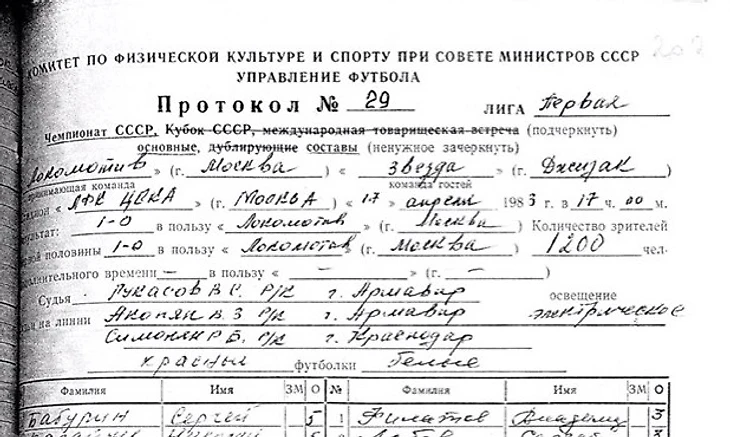 КОМИТЕТ ПО ФИЗИЧЕСКОЙ КУЛЬТУРЕ И СПОРТУ ПРИ СОВЕТЕ МИНИСТРОВ СССР
УПРАВЛЕНИЕ ФУТБОЛА
Протокол № 29 ЛИГА Первая
Чемпионат СССР, Кубок СССР, международная товарищеская встреча (подчеркнуть)
основные, дублирующие составы (ненужное зачеркнуть)
Локомотив» (г. Москва) « Звезда » (г. Джизак)
принимающая команда команда гостей
«ЛФК ЦСКА» (г. Москва) «17» апреля 1983 г. в 17 ч. 00 м.
1-0 в пользу «Локомотив (г. Москва) Количество зрителей
половины 1-0 в пользу «Локомотив (г. Москва) 1200 чел.
времени — в пользу « — » (г. — )
Судья Тукасов В С. Р/К г. Армавир освещение
на линии Акопян В. З Р/К г. Армавир электрическое
Симонян Р. Б. Р/К г. Краснодар
красные футболки белые
Фамилия Имя ЗМ О № Фамилия Имя ЗМ О
Бабурин Сергей 5 1 Филатов Владимир 3